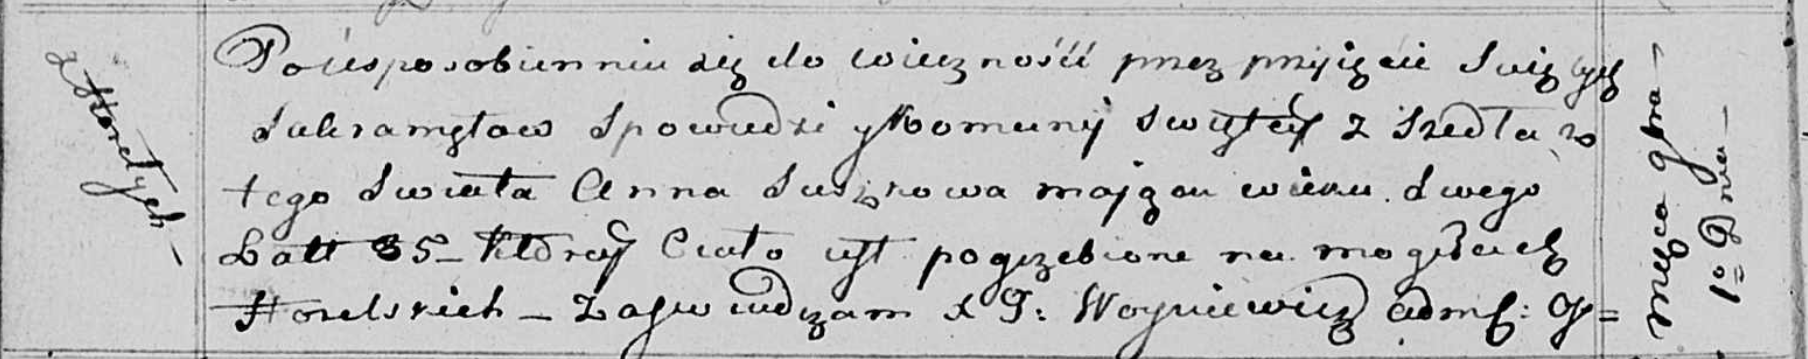 z Horełych
Po usposobienniu się do wieczności przez przyięcie Swiętych
Sakramętow Spowiedzi y Komunij Swiętey z Szedła z
tego Swiata Anna Suszkowa mająca wieku Swego
Latt 35 – Ktorey Ciało iest pogrzebione na mogiłach
Horelskich – Zaswiadczam X J: Woyniewicz adm:
1º Dnia